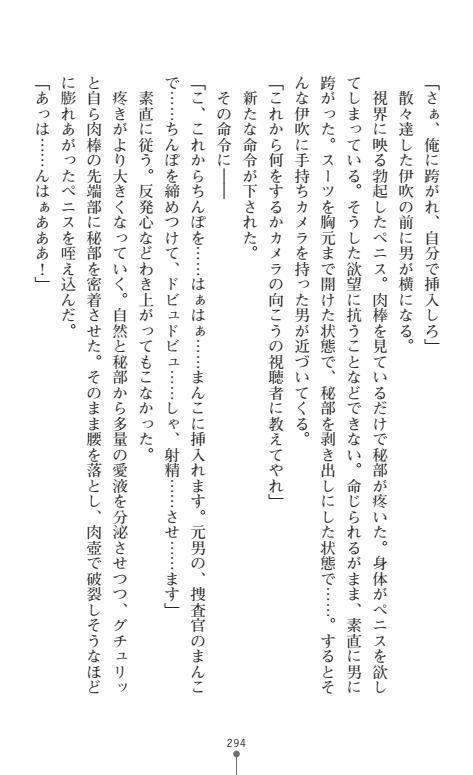 「さぁ、俺に跨がれ、自分で挿入しろ」
散々達した伊吹の前に男が横になる。
視界に映る勃起したペニス。肉棒を見ているだけで秘部が疼いた。身体がペニスを欲し
てしまっている。そうした欲望に抗うことなどできない。命じられるがまま、素直に男に
跨がった。スーツを胸元まで開けた状態で、秘部を剥き出しにした状態で……。するとそ
んな伊吹に手持ちカメラを持った男が近づいてくる。
「これから何をするかカメラの向こうの視聴者に教えてやれ」
新たな命令が下された。
その命令に――
「こ、これからちんぽを……はぁはぁ……まんこに挿入れます。元男の、捜査官のまんこ
で……ちんぽを締めつけて、ドビュドビュ……しゃ、射精……させ……ます」
素直に従う。反発心などわき上がってもこなかった。
疼きがより大きくなっていく。自然と秘部から多量の愛液を分泌させつつ、グチュリッ
と自ら肉棒の先端部に秘部を密着させた。そのまま腰を落とし、肉壺で破裂しそうなほど
に膨れあがったペニスを咥え込んだ。
「あっは……んはぁあああ！」
294